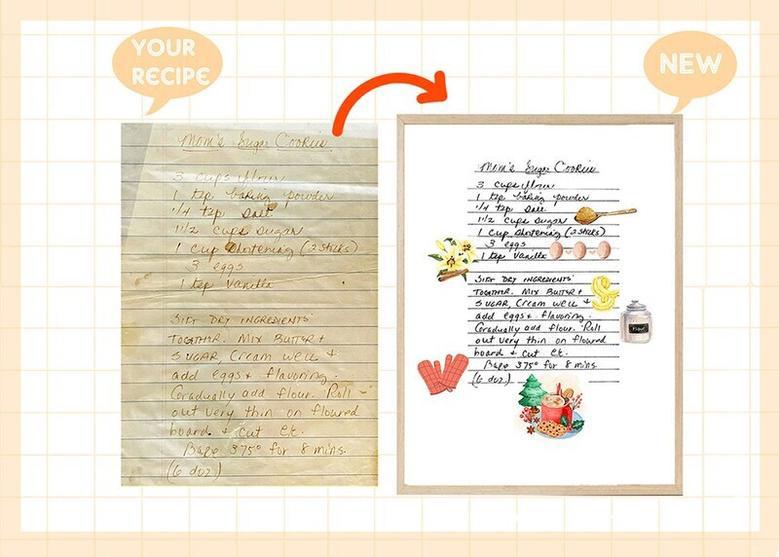 YOUR
RECIPE
NEW
Mom's Sugar Cookies
3 cups flour
1 tsp baking powder
1/4 tsp Salt
1 1/2 cups sugar
1 cup shortening (2 sticks)
3 eggs
1 tsp Vanilla
SIFT DRY INGREDIENTS
TOGETHER. MIX BUTTER +
SUGAR, Cream well +
add eggs + flavoring.
Gradually add flour. Roll
out very thin on floured
board + cut etc.
Bake 375° for 8 mins.
(6 doz)
Mom's Sugar Cookies
3 cups flour
1 tsp baking powder
1/4 tsp Salt
1 1/2 cups sugar
1 cup shortening (2 sticks)
3 eggs
1 tsp Vanilla
SIFT DRY INGREDIENTS
TOGETHER. MIX BUTTER +
SUGAR, Cream well +
add eggs + flavoring.
Gradually add flour. Roll
out very thin on floured
board + cut etc.
Bake 375° for 8 mins.
(6 doz)